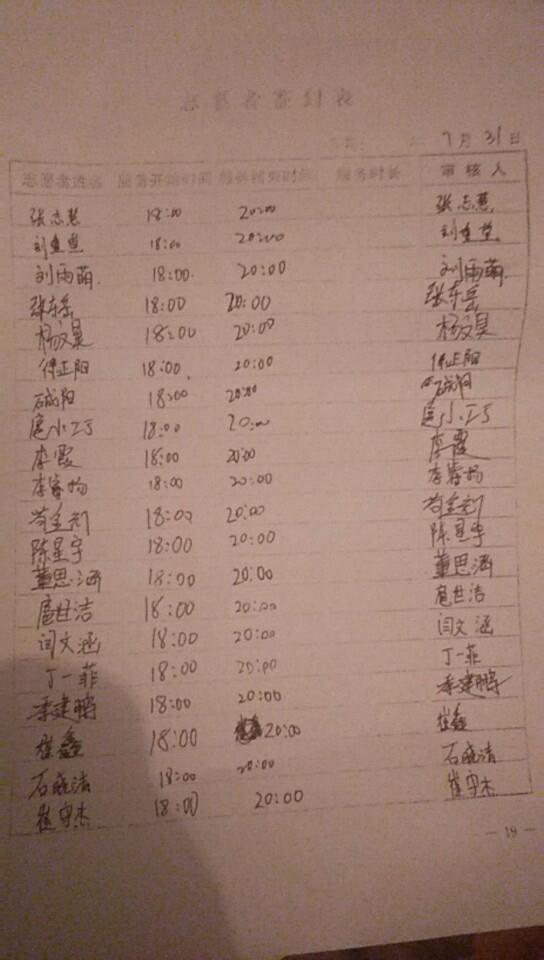 志愿者签到表
7月31日
志愿者姓名 服务开始时间 服务结束时间 服务时长 审核人
张志慧 18:00 20:00 张志慧
刘 18:00 20:00 刘
刘雨萌 18:00 20:00 刘雨萌
张东岳 18:00 20:00 张东岳
杨文昊 18:00 20:00 杨文昊
正阳 18:00 20:00 正阳
18:00 20:00
18:00 20:00
李霞 18:00 20:00 李霞
李 18:00 20:00 李
18:00 20:00
陈星宇 18:00 20:00 陈星宇
董思涵 18:00 20:00 董思涵
扈世洁 18:00 20:00 扈世洁
闫文涵 18:00 20:00 闫文涵
丁一菲 18:00 20:00 丁一菲
季建鹏 18:00 20:00 季建鹏
崔鑫 18:00 20:00 崔鑫
石晓洁 18:00 20:00 石晓洁
崔守杰 18:00 20:00 崔守杰
— 19 —